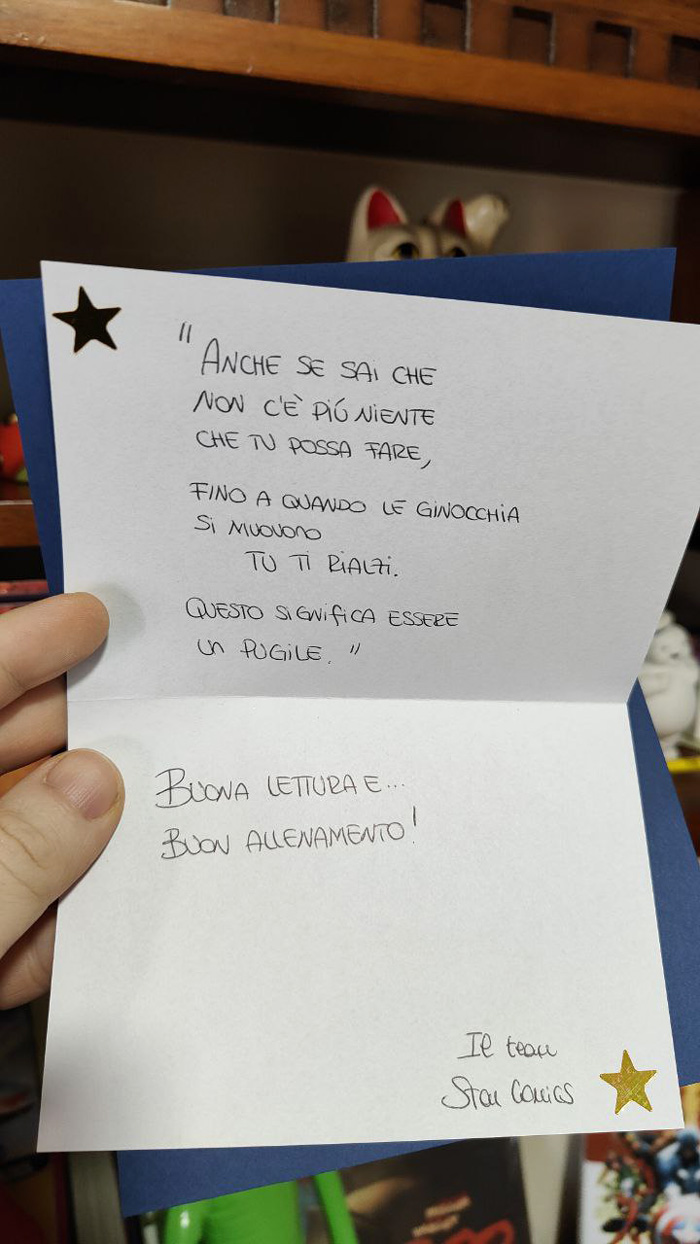 "ANCHE SE SAI CHE
NON C'È PIÚ NIENTE
CHE TU POSSA FARE,
FINO A QUANDO LE GINOCCHIA
SI MUOVONO
TU TI RIALZI.
QUESTO SIGNIFICA ESSERE
UN PUGILE."
BUONA LETTURA E...
BUON ALLENAMENTO!
Il team
Star Comics